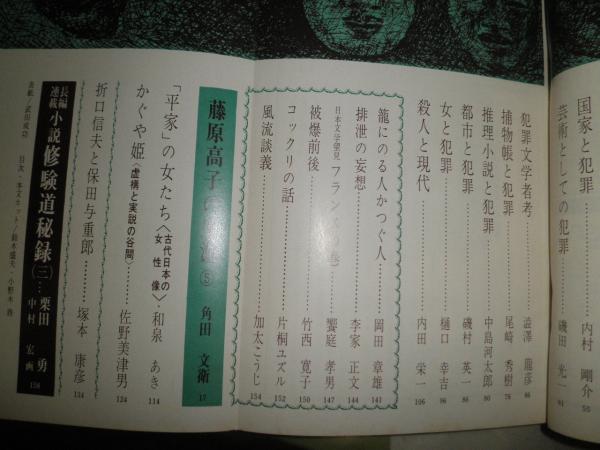 国家と犯罪 内村 剛介 50
芸術としての犯罪 磯田 光一
犯罪文学者考 澁澤 龍彦
捕物帳と犯罪 尾崎 秀樹 76
推理小説と犯罪 中島河太郎 80
都市と犯罪 磯村 英一 86
女と犯罪 樋口 幸吉 96
殺人と現代 内田 栄一 106
籠にのる人かつぐ人 岡田 章雄 141
排泄の妄想 李家 正文 144
日本文学望見 フランスの巻 饗庭 孝男 147
被爆前後 竹西 寛子 150
コックリの話 片桐ユズル 152
風流談義 加太こうじ 154
藤原高子の ⑤ 角田 文衛 17
「平家」の女たち〈古代日本の女性像〉 和泉 あき 114
かぐや姫〈虚構と実説の谷間〉 佐野美津男 124
折口信夫と保田与重郎 塚本 康彦 134
長編連載 小説修験道秘録(三) 栗田 勇 中村 宏画 158
目次・本文カット/鈴木慶夫・小野木